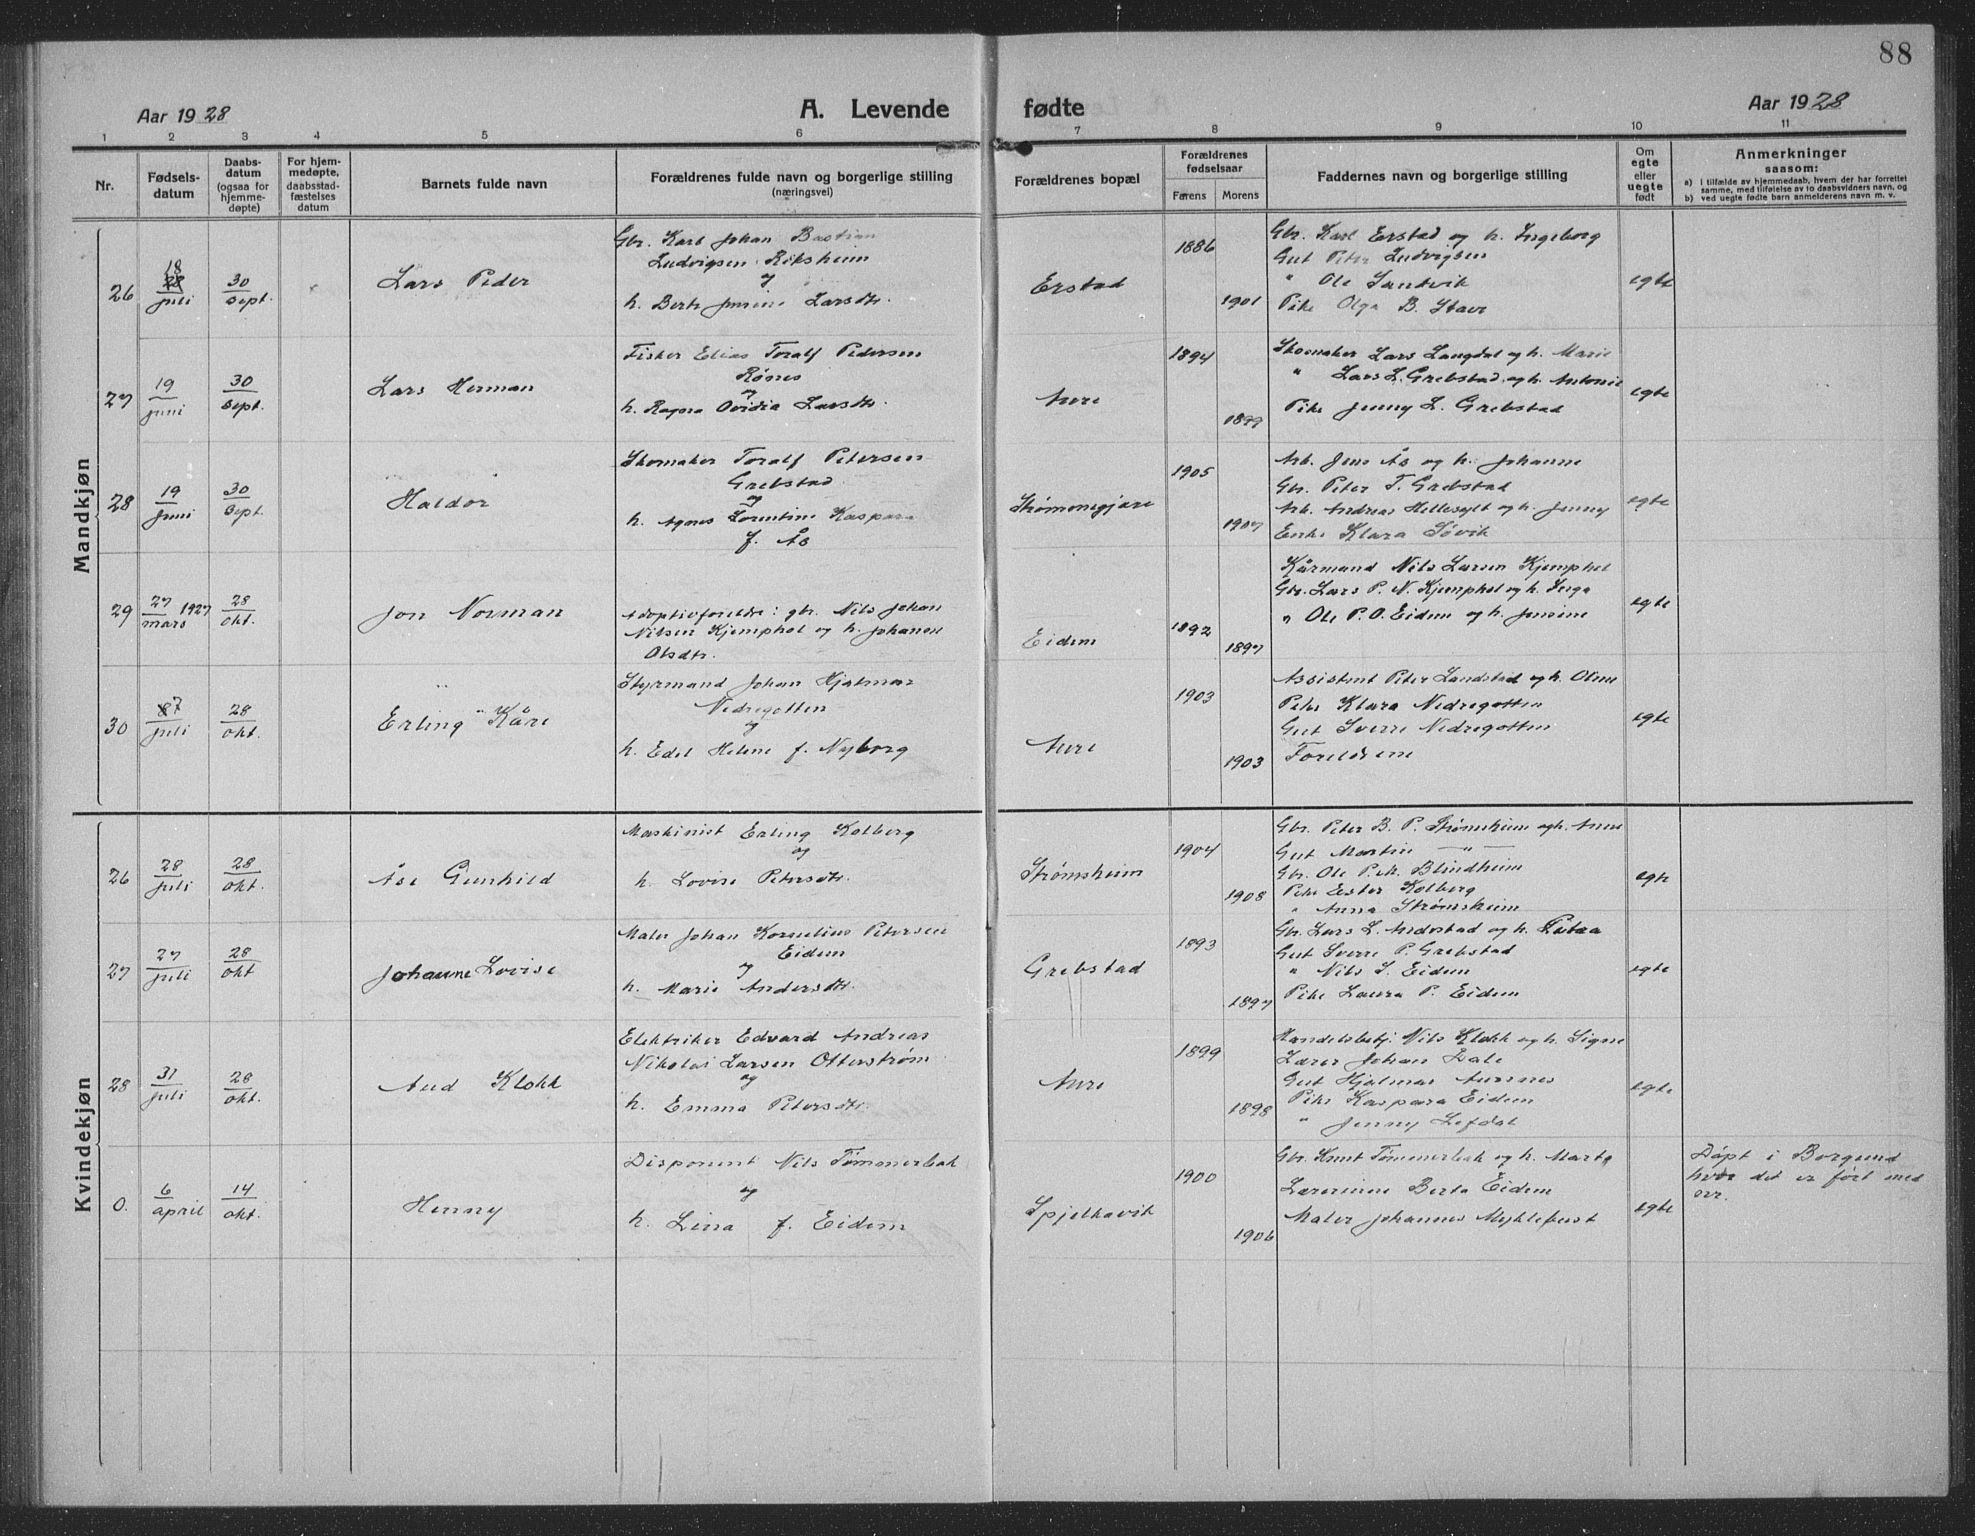 88
Aar 1928
A. Levende fødte
Aar 1928
1 2 3 4 5 6 7 8 9 10 11
Nr.
Fødsels-
datum
Daabs-
datum
(ogsaa for
hjemme-
døpte)
For hjem-
medøpte,
daabsstad-
fæstelses
datum
Barnets fulde navn
Forældrenes fulde navn og borgerlige stilling
(næringsvei)
Forældrenes bopæl
Forældrenes
fødselsaar
Farens Morens
Faddernes navn og borgerlige stilling
Om
egte
eller
uegte
født
Anmerkninger
saasom:
a) i tilfælde av hjemmedaab, hvem der har forrettet
samme, med tilføielse av to daabsvidners navn, og
b) ved uegte født barn anmelderens navn m. v.
Mandkjøn
26
18
juli
30
sept.
Lars Peder
Gbr. Karl Johan Bastian
Ludvigsen Riksheim
og
h. Berte Jensine Larsdtr.
Erstad
1886
1901
Gbr. Karl Erstad og h. Ingeborg
Gut Peter Ludvigsen
" Ole Sandvik
Pike Olga B. Stave
egte
27
19
juni
30
sept.
Lars Herman
Fisker Elias Toralf Pedersen
Rønes
og
h. Ragna Ovidia Larsdtr.
Aure
1894
1899
Skomaker Lars Langdal og h. Marie
" Lars L. Grebstad og h. Antonie
Pike Jenny L. Grebstad
egte
28
19
juni
30
sept.
Haldor
Skomaker Toralf Petersen
Grebstad
og
h. Agnes Lorentine Kaspara
f. Ås
Strømmegjære
1905
1907
Arb. Jens Ås og h. Johanne
Gbr. Peter T. Grebstad
Arb. Andreas Hellesylt og h. Jenny
Enke Klara Søvik
egte
29
27
mars 1927
28
okt.
Jon Norman
Adoptivforeldre: gbr. Nils Johan
Nilsen Kjemphol og h. Johanne
Olsdtr.
Eidem
1892
1897
Kårmand Nils Larsen Kjemphol
Gbr. Lars P. N. Kjemphol og h. Inga
" Ole P. O. Eidem og h. Jensine
egte
30
7
juli
28
okt.
Erling Kåre
Styrmand Johan Hjalmar
Nedregotten
og
h. Edel Helene f. Nyborg
Aure
1903
1903
Assistent Peter Landstad og h. Oline
Pike Klara Nedregotten
Gut Sverre Nedregotten
Foreldrene
egte
Kvindekjøn
26
28
juli
28
okt.
Åse Gunhild
Maskinist Erling Kolberg
og
h. Lovise Petersdtr.
Strømsheim
1904
1908
Gbr. Peter B. P. Strømsheim og h. Anne
Gut Martin — " —
Gbr. Ole Pet. Blindheim
Pike Ester Kolberg
" Anna Strømsheim
egte
27
27
juli
28
okt
Johanne Lovise
Maler Johan Kornelius Petersen
Eidem
og
h. Marie Andersdtr.
Grebstad
1893
1897
Gbr. Lars L. Andestad og h.
Gut Sverre P. Grebstad
" Nils S. Eidem
Pike Laura P. Eidem
egte
28
31
juli
28
okt.
Aud Klokk
Elektriker Edvard Andreas
Nikolai Larsen Otterstrøm
og
h. Emma Petersdtr.
Aure
1899
1898
Handelsbetj. Nils Klokk og h. Signe
Lærer Johan Dale
Gut Hjalmar Aursnes
Pike Kaspara Eidem
" Jenny Lefdal
egte
0.
6
april
14
okt.
Henny
Disponent Nils Tømmerbak
og
h. Lina f. Eidem
Spjelkavik
1900
1906
Gbr. Knut Tømmerbak og h. Marta
Lærerinne Berta Eidem
Maler Johannes Myklebust
egte
Døpt i Borgund
hvor det er ført med
nr.